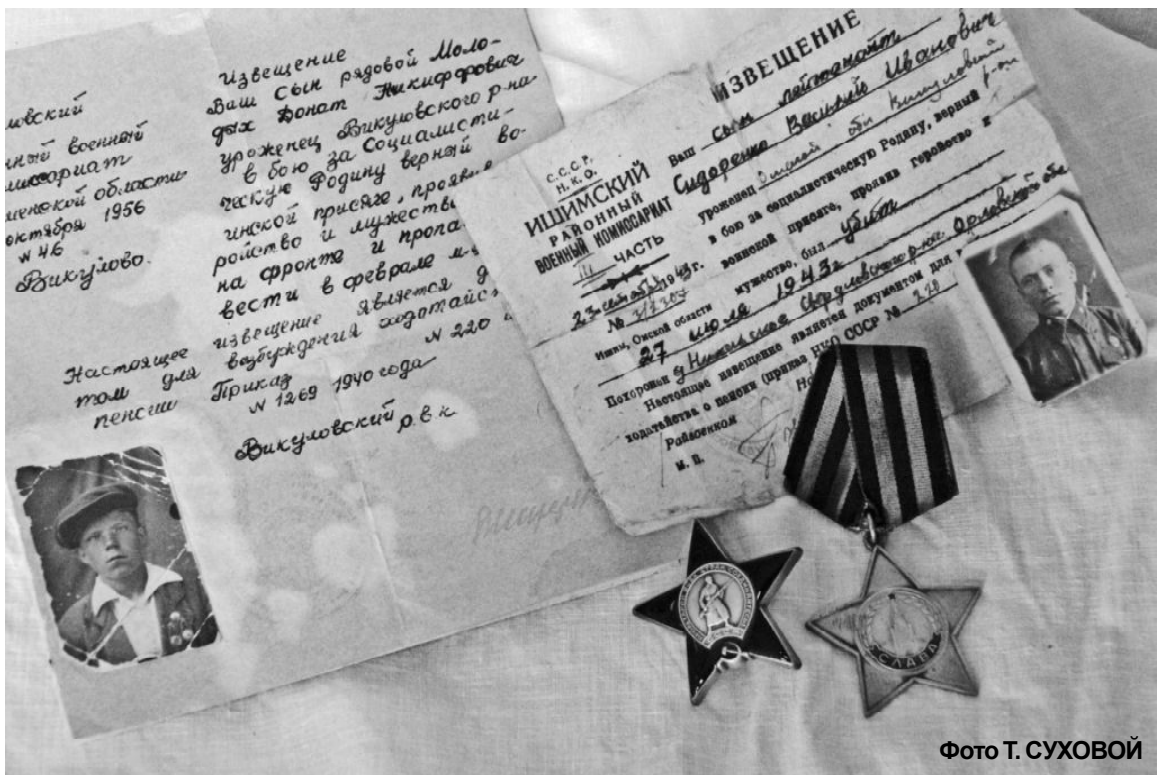 ловский
нный военный
миссариат
менской области
октября 1956
№ 46
Викулово.
Извещение
Ваш сын рядовой Моло-
дых Донат Никифорович
уроженец Викуловского р-на
в бою за Социалисти-
ческую Родину верный во-
инской присяге, прояви
ройство и мужество
на фронте и пропа
вести в феврале м-ц
Настоящее извещение является д
том для возбуждения ходатайс
пенсии Приказ № 220
№ 1269 1940 года
Викуловский р.в.к.
С.С.С.Р.
Н.К.О.
ИШИМСКИЙ
РАЙОННЫЙ
ВОЕННЫЙ КОМИССАРИАТ
ЧАСТЬ
23 сентября 1943г.
№
Ишим, Омской области
ИЗВЕЩЕНИЕ
Ваш сын лейтенант
Сидоренко Василий Иванович
уроженец Омской обл Викуловский р-он
в бою за социалистическую Родину, верный
воинской присяге, проявив геройство и
мужество, был убит
27 июля 1943г
Похоронен д Орловской обл
Настоящее извещение является документом для
ходатайства о пенсии (приказ НКО СССР № 220
Райвоенком
М. П.
СЛАВА
Фото Т. СУХОВОЙ